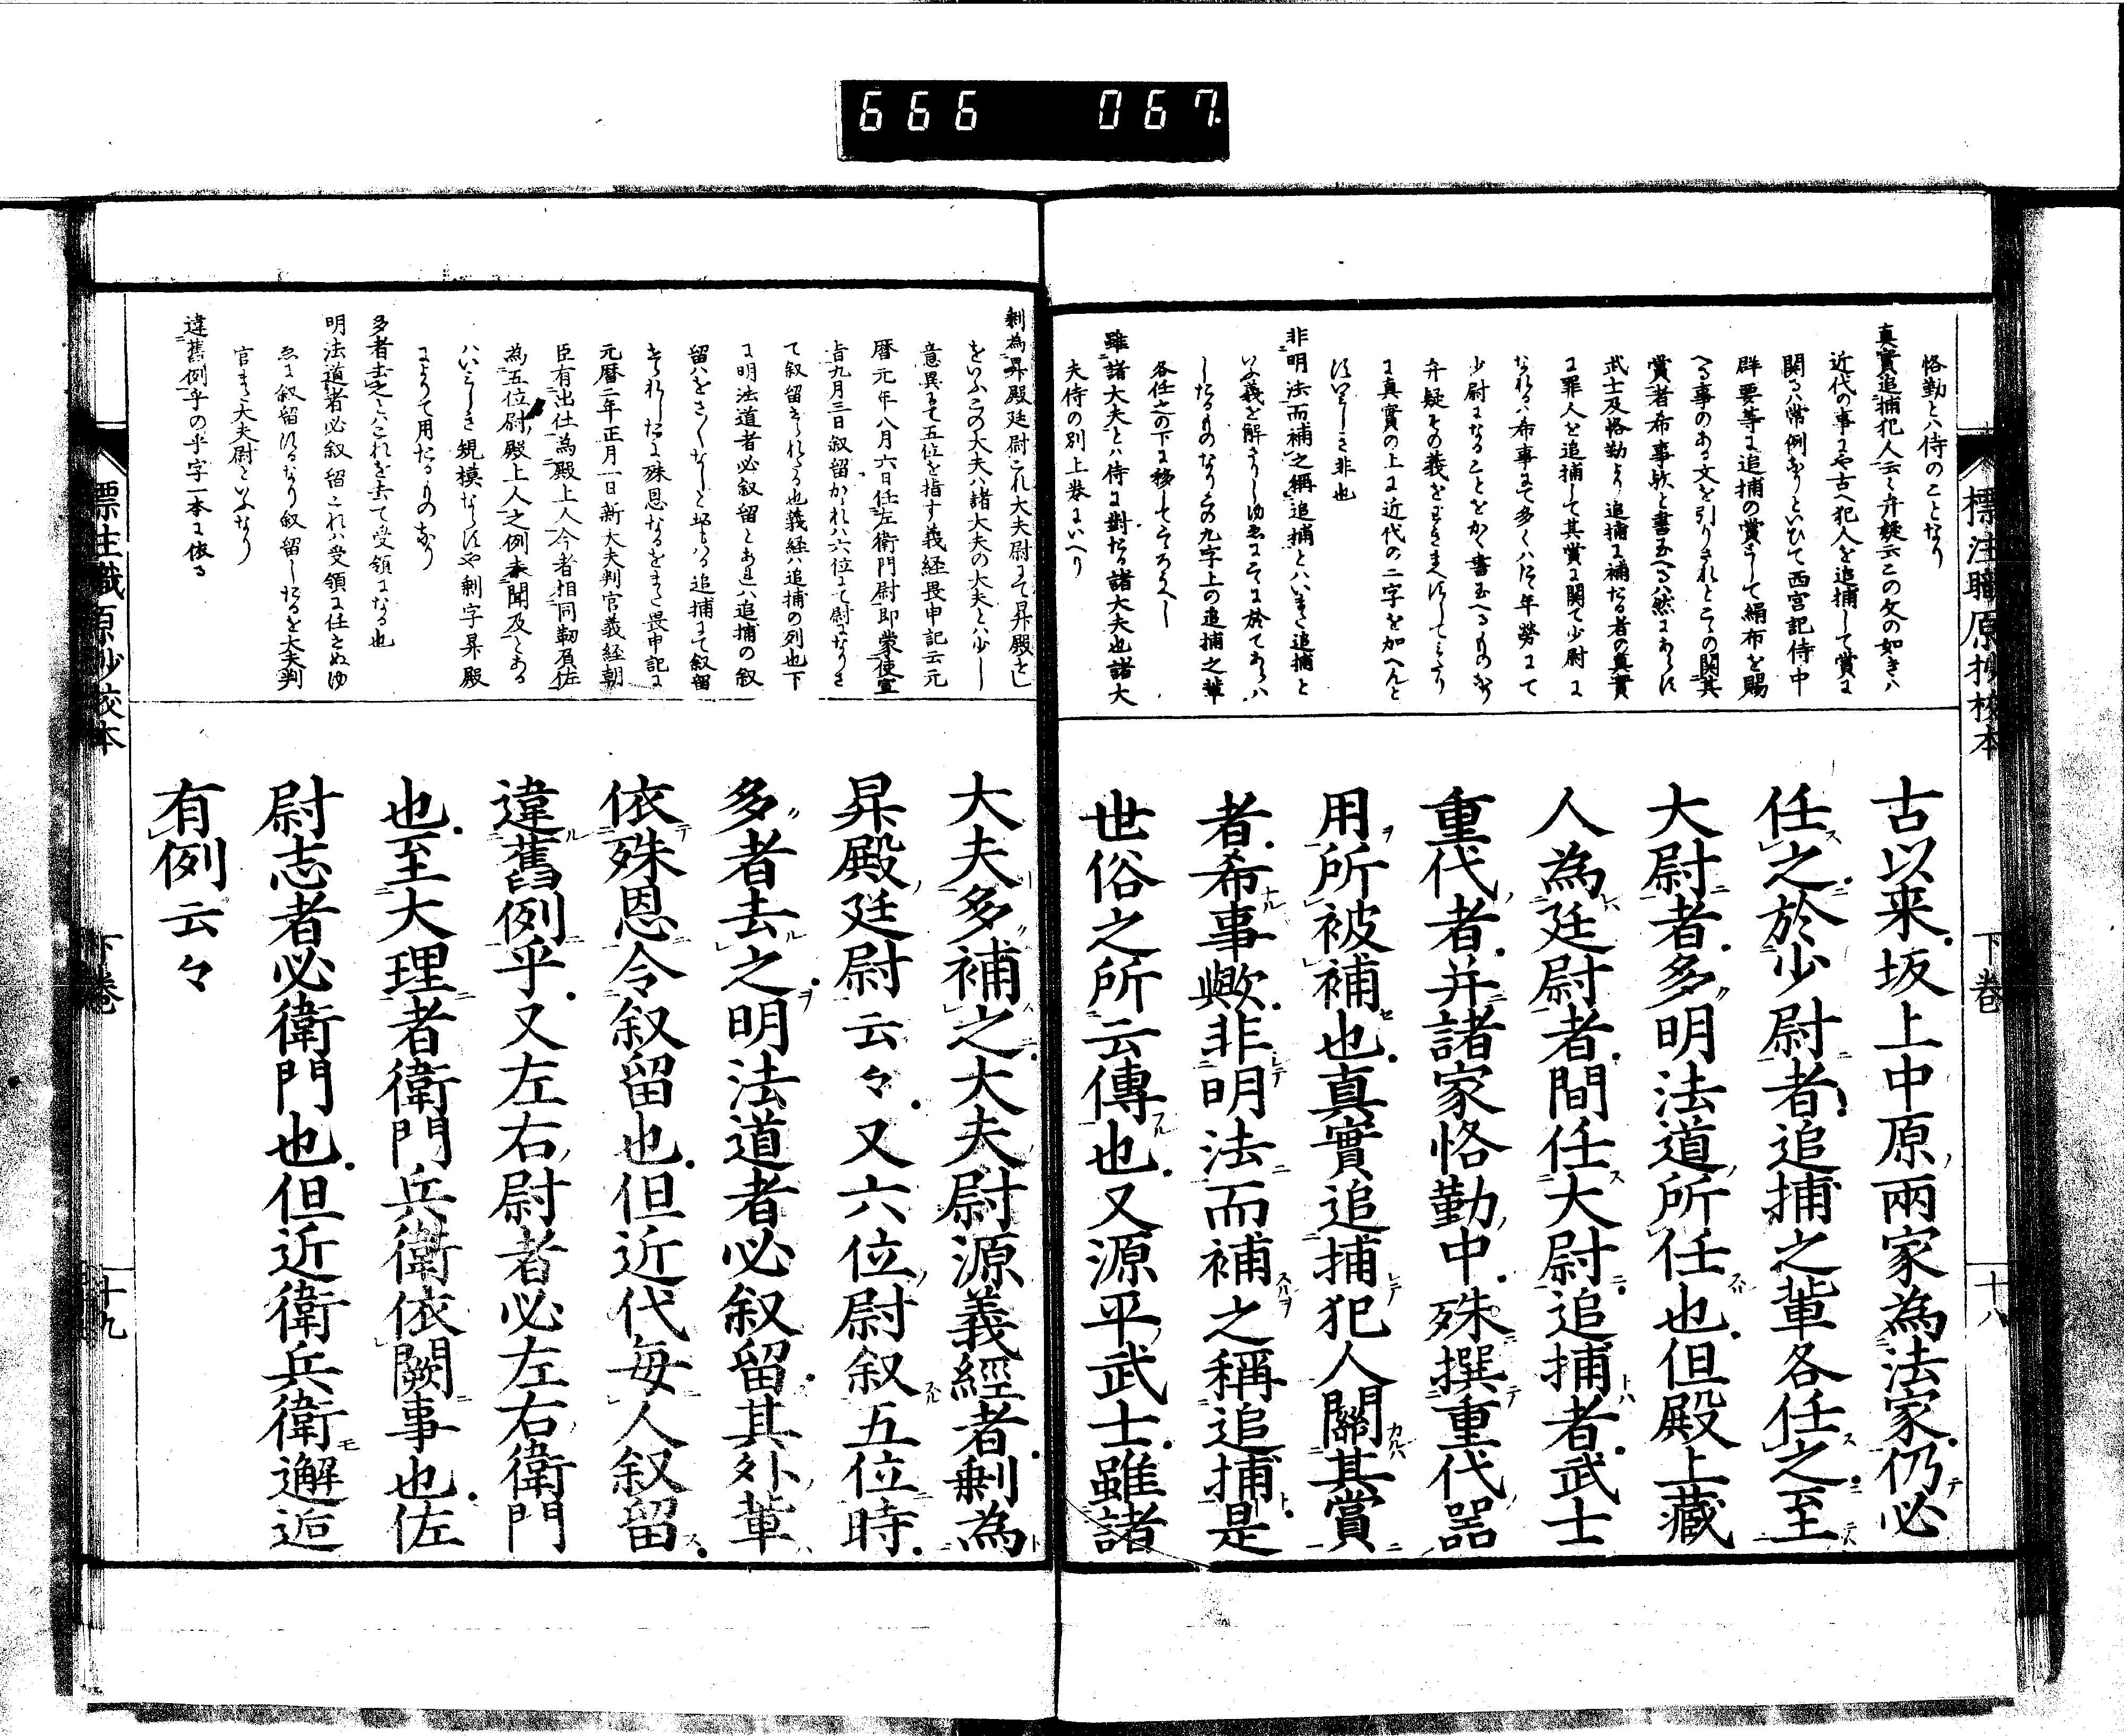 666 067
標注職原抄校本 下巻 十八
恪勤とハ侍のことなり
真實追捕犯人云々弁疑云この文の如きハ
近代の事にや古へ犯人を追捕して賞に
関るハ常例なりといひて西宮記侍中
群要等に追捕の賞として絹布を賜
へる事のある文を引りされとこゝの関其
賞者希事歟と書玉へるハ然にあらす
武士及恪勤より追捕に補たる者の真實
に罪人を追捕して其賞に関て少尉に
なれるハ希事にて多くハた年勞にて
少尉になることをかく書玉へるものなり
弁疑その義をわきまへすしてこゝなり
に真實の上に近代の二字を加へんと
すいりしき非也
非明法而補之稱追捕とハいまた追捕と
いふ義を解さりしゆゑにこゝに於てあらハ
したるものなりこの九字上の追捕之輩
各任之の下に移してこゝろうへし
雖諸大夫とハ侍に對たる諸大夫也諸大
夫侍の別上巻にいへり
古以来坂上中原兩家為法家仍必
任之於少尉者追捕之輩各任之至
大尉者多明法道所任也但殿上藏
人為廷尉者間任大尉追捕者武士
重代者并諸家恪勤中殊撰重代器
用所被補也真實追捕犯人關其賞
者希事歟非明法而補之稱追捕是
世俗之所云傳也又源平武士雖諸
剰為昇殿廷尉これ大夫尉にて昇殿せし
をいふこの大夫ハ諸大夫の大夫とハ少し
意異にて五位を指す義経畏申記云元
暦元年八月六日任左衛門尉即蒙使宣
旨九月三日叙留かれハ六位にて尉になりさ
て叙留せられたる也義経ハ追捕の列也下
に明法道者必叙留とあれハ追捕の叙
留ハをさ〱なしと聞ゆる追捕にて叙留
せられしたに殊恩なるをまた畏申記に
元暦二年正月一日新大夫判官義経朝
臣有出仕為殿上人今者相同靭負佐
為五位尉殿上人之例未聞及とある
ハいみしき規模ならすや剰字昇殿
にかゝりて用たるものなり
多者去之とハこれを去て受領になる也
明法道者必叙留これハ受領に任せぬゆ
ゑに叙留するなり叙留したるを大夫判
官また大夫尉といふなり
違舊例乎の乎字一本に依る
大夫多補之大夫尉源義經者剰為
昇殿廷尉云々又六位尉叙五位時
多者去之明法道者必叙留其外輩
依殊恩令叙留也但近代毎人叙留
違舊例乎又左右尉者必左右衛門
也至大理者衛門兵衛依闕事也佐
尉志者必衛門也但近衛兵衛邂逅
有例云々
標注職原抄校本 下巻 十九